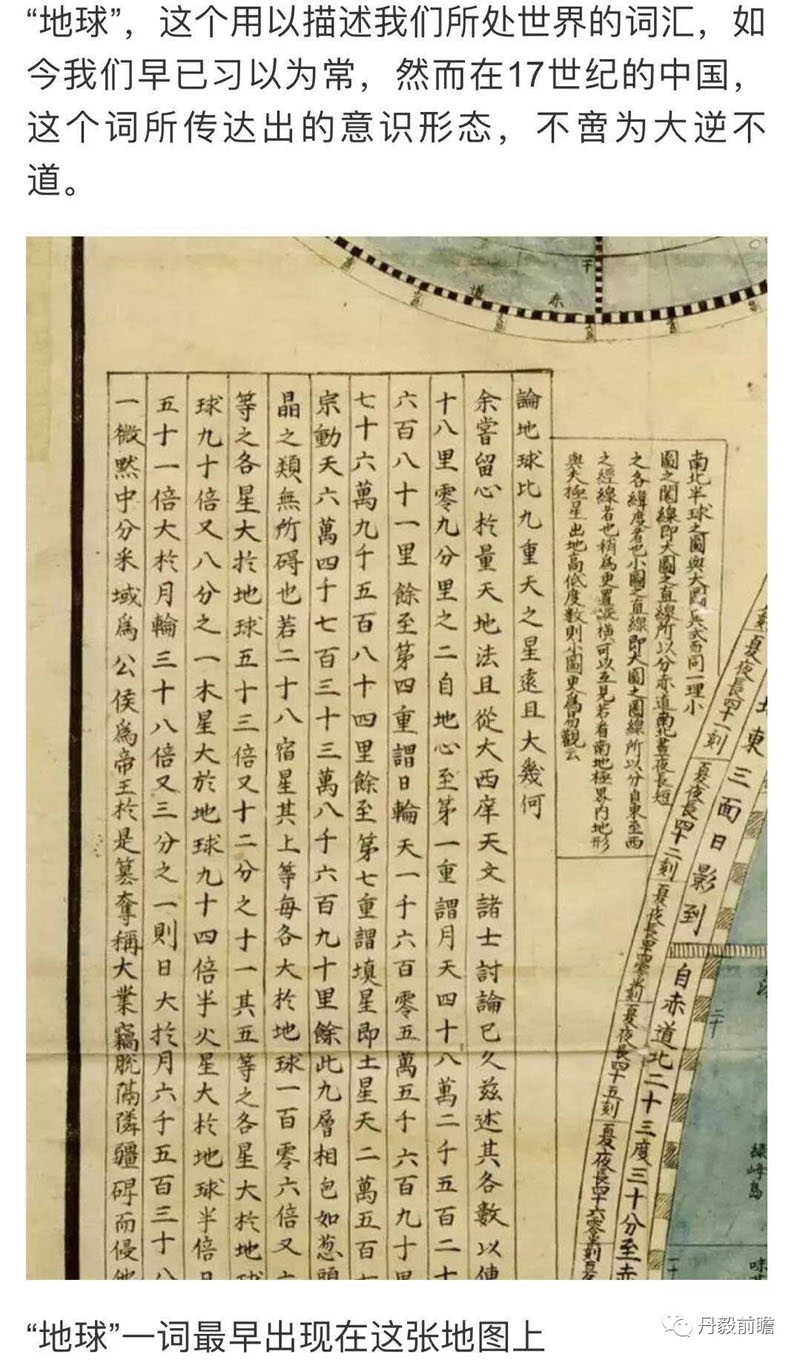 “地球”，这个用以描述我们所处世界的词汇，如
今我们早已习以为常，然而在17世纪的中国，
这个词所传达出的意识形态，不啻为大逆不
道。
赤
道
二十
綠峰島
東三面日影到
自赤道北二十三度三十分至赤
夏夜長四十一刻
夏夜長四十二刻
夏夜長四十五刻
南北半球之圖與大圖異式而同一理小
圖之圈線即大圖之直線所以分赤道南北晝夜長短
之各緯度者也小圖之直線即大圖之圈線所以分自東至西
之經線者也稍為更置縱橫可以互見若看南地極界內地形
與夫極星出地高低度數則小圖更為易觀云
論地球比九重天之星遠且大幾何
余嘗留心於量天地法且從大西庠天文諸士討論已久茲述其各數以便
十八里零九分里之二自地心至第一重謂月天四十八萬二千五百二十
六百八十一里餘至第四重謂日輪天一千六百零五萬五千六百九十里
七十六萬九千五百八十四里餘至第七重謂填星即土星天二萬五百七
宗動天六萬四千七百三十三萬八千六百九十里餘此九層相包如葱頭
晶之類無所碍也若二十八宿星其上等每各大於地球一百零六倍又六
等之各星大於地球五十三倍又十二分之十一其五等之各星大於地球
球九十倍又八分之一木星大於地球九十四倍半火星大於地球半倍日
五十一倍大於月輪三十八倍又三分之一則日大於月六千五百三十八
一微黙中分采域為公侯為帝王於是簒奪稱大業竊脫隔隣疆碍而侵他
“地球”一词最早出现在这张地图上
丹毅前瞻